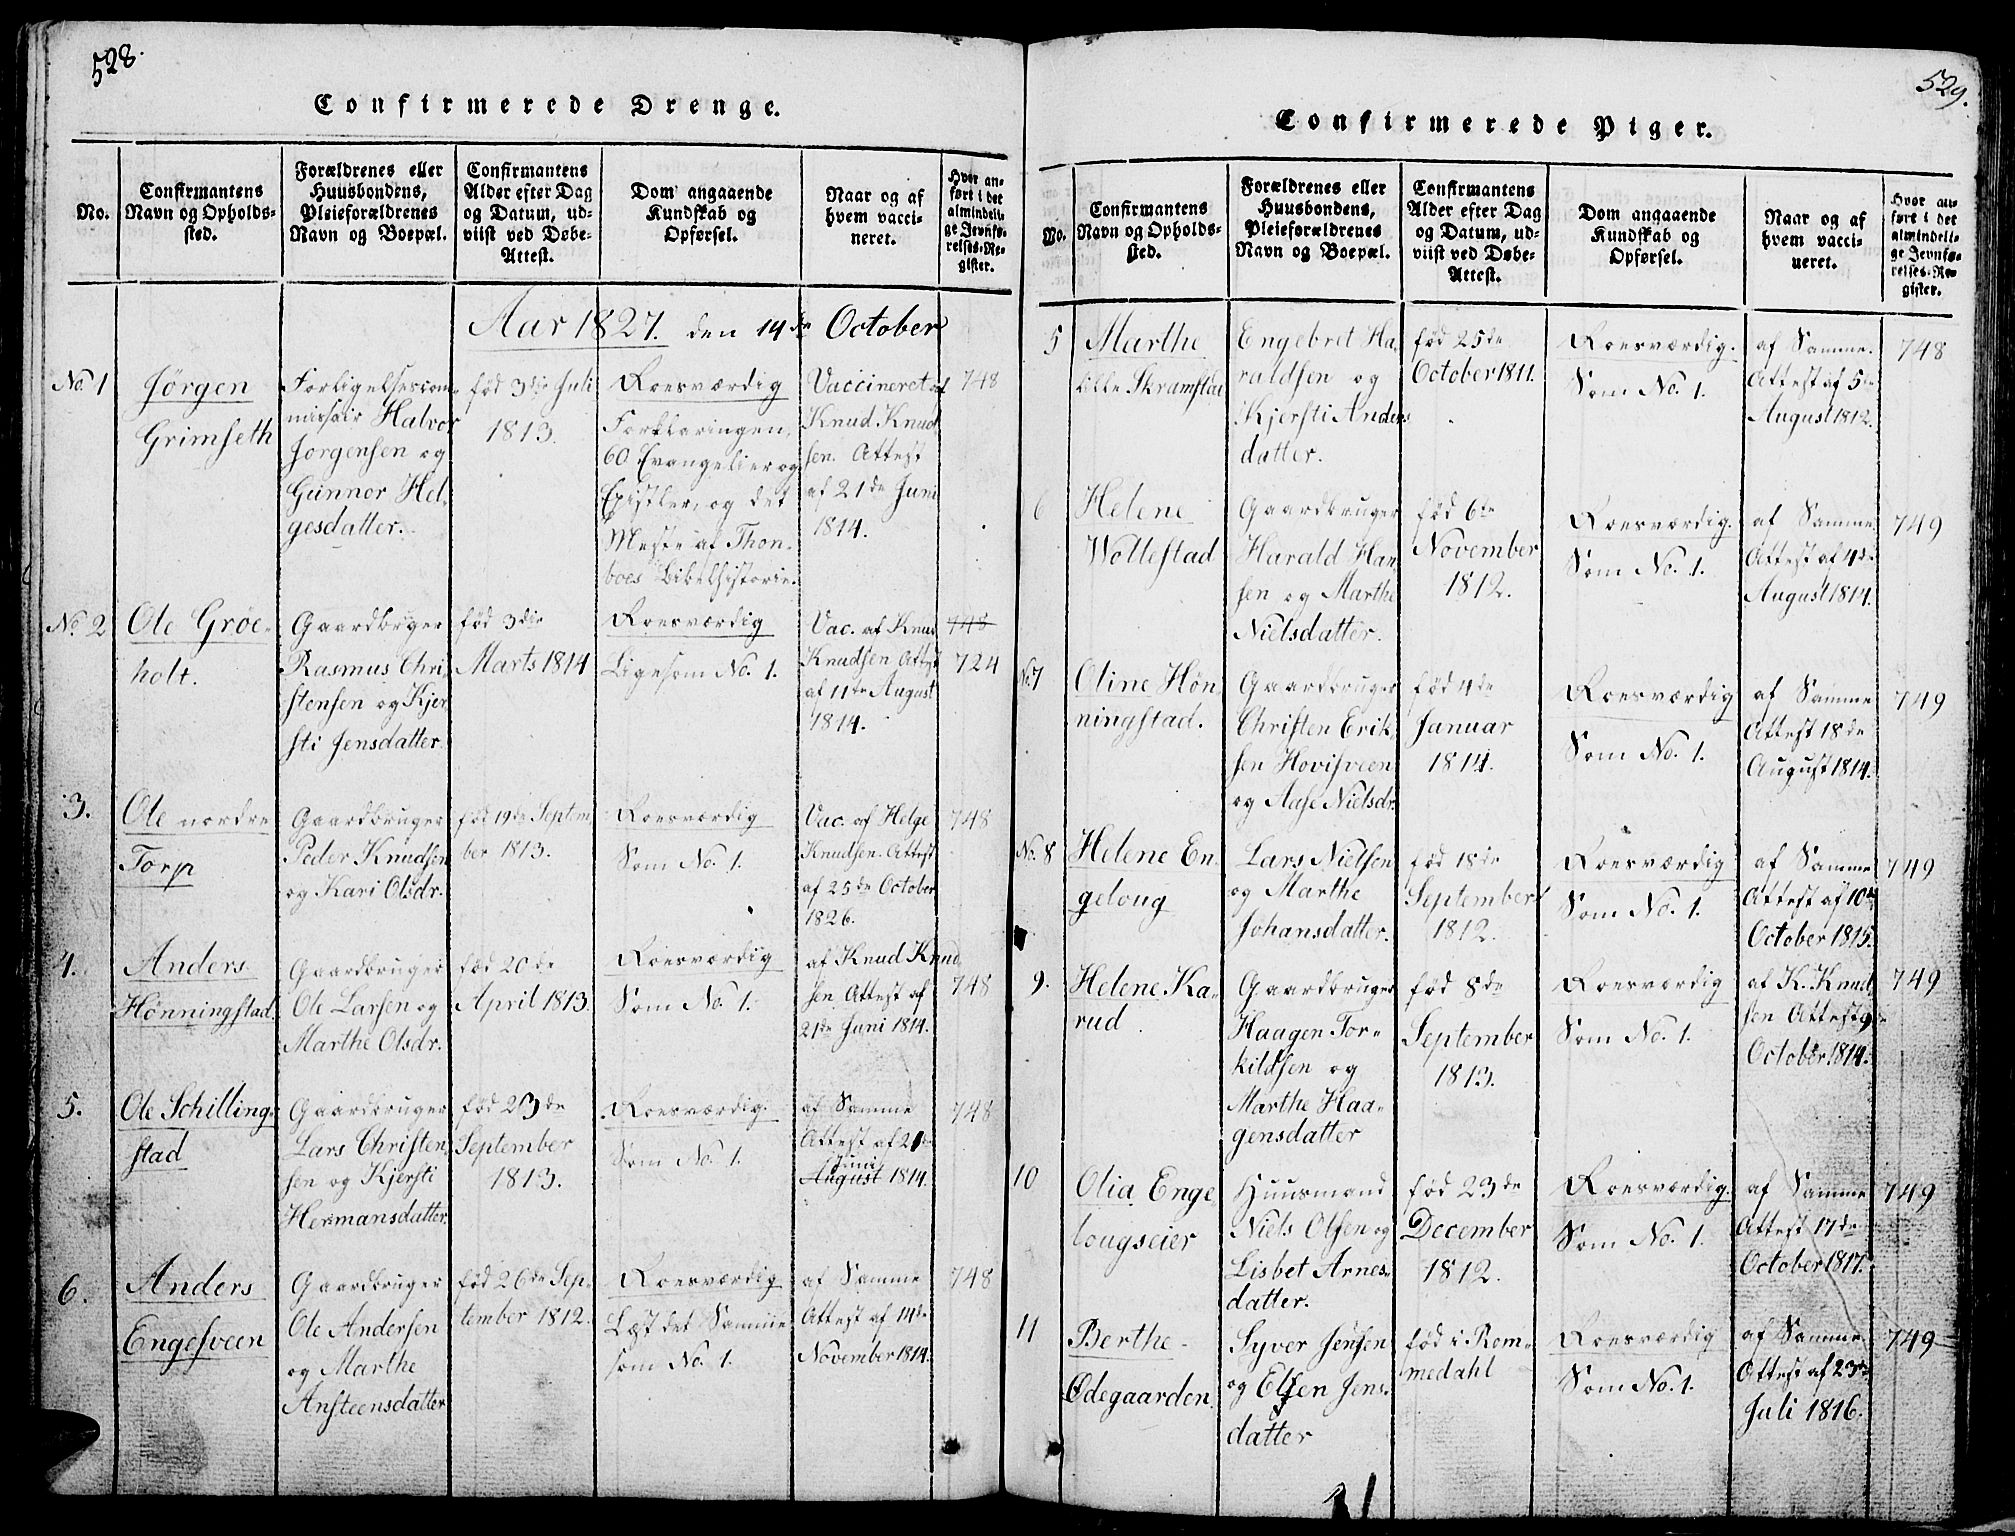 528.
Confirmerede Drenge.
No.
Confirmantens
Navn og Opholds-
sted.
Forældrenes eller
Huusbondens,
Pleieforældrenes
Navn og Boepæl.
Confirmantens
Alder efter Dag
og Datum, ud-
viist ved Døbe-
Attest.
Dom angaaende
Kundskab og
Opførsel.
Naar og af
hvem vacci-
neret.
Hvor an-
ført i det
almindeli-
ge Jevnfø-
relses-Re-
gister.
Aar 1827. den 14de October
No. 1
Jørgen
Grimseth
Forligelsescom-
missair Halvor
Jørgensen og
Gunnor Hel-
gesdatter.
fød 3die Juli
1813.
Roesværdig
Forklaringen,
60 Evangelier og
Epistler, og det
Meste af Thon-
boes Bibelhistorie.
Vaccineret af
Knud Knud-
sen. Attest
af 21de Juni
1814.
748
No. 2
Ole Grøe-
holt.
Gaardbruger
Rasmus Chri-
stensen og Kjer-
sti Jensdatter
fød 3die
Marts 1814
Roesværdig
Ligesom No. 1.
Vac. af Knud
Knudsen Attest
af 11te August
1814.
748
724
3.
Ole nordre
Torp
Gaardbruger
Peder Knudsen
og Kari Olsdr.
fød 19de Septem-
ber 1813.
Roesværdig
Som No. 1.
Vac. af Helge
Knudsen. Attest
af 25de October
1826.
748
4.
Anders
Hønningstad
Gaardbruger
Ole Larsen og
Marthe Olsdr.
fød 20de
April 1813.
Roesværdig
Som No. 1.
af Knud Knud-
sen Attest af
21de Juni 1814.
748
5.
Ole Schilling-
stad
Gaardbruger
Lars Christen-
sen og Kjersti
Hermansdatter.
fød 23de
September
1813.
Roesværdig.
Som No. 1.
af Samme
Attest af 21de
Juni
August 1814.
748
6.
Anders
Engesveen
Gaardbruger
Ole Andersen
og Marthe
Ansteensdatter
fød 26de Sep-
tember 1812.
Roesværdig
Læst det Samme
som No. 1.
af Samme
Attest af 14de
November 1814.
748
529.
Confirmerede Piger.
No.
Confirmantens
Navn og Opholds-
sted.
Forældrenes eller
Huusbondens,
Pleieforældrenes
Navn og Boepæl.
Confirmantens
Alder efter Dag
og Datum, ud-
viist ved Døbe-
Attest.
Dom angaaende
Kundskab og
Opførsel.
Naar og af
hvem vacci-
neret.
Hvor an-
ført i det
almindeli-
ge Jevnfø-
relses-Re-
gister.
5
Marthe
lille Skramstad
Engebret Ha-
raldsen og
Kjersti Anders
datter.
fød 25de
October 1811.
Roesværdig.
Som No. 1.
af Samme.
Attest af 5te
August 1812.
748
6
Helene
Wollestad
Gaardbruger
Harald Han-
sen og Marthe
Nielsdatter.
fød 6te
November
1812.
Roesværdig.
Som No. 1.
af Samme
Attest af 4de
August 1814.
749
No. 7
Oline Høn-
ningstad.
Gaardbruger
Christen Erik-
sen Hovisveen
og Aase Nielsdr.
fød 4de
Januar
1814.
Roesværdig
Som No. 1.
af Samme
Attest 18de
August 1814.
749
No. 8
Helene En-
geloug
Lars Nielsen
og Marthe
Johansdatter.
fød 18de
September
1812.
Roesværdig
Som No. 1.
af Samme
Attest af 10de
October 1815.
749
9.
Helene Ka-
rud.
Gaardbruger
Haagen Tor-
kildsen og
Marthe Haa-
gensdatter
fød 8de
September
1813.
Roesværdig
Som No. 1.
af K. Knud-
sen Attest 9de
October 1814.
749
10
Olia Enge-
lougseier
Huusmand
Niels Olsen og
Lisbet Arnes-
datter.
fød 23de
December
1812.
Roesværdig.
Som No. 1.
af Samme
Attest 17de
October 1817.
749
11
Berthe
Ødegaarden.
Syver Jensen
og Elsen Jens-
datter
fød i Rom-
medahl
Roesværdig
Som No. 1.
af Samme
Attest af 23de
Juli 1816.
749